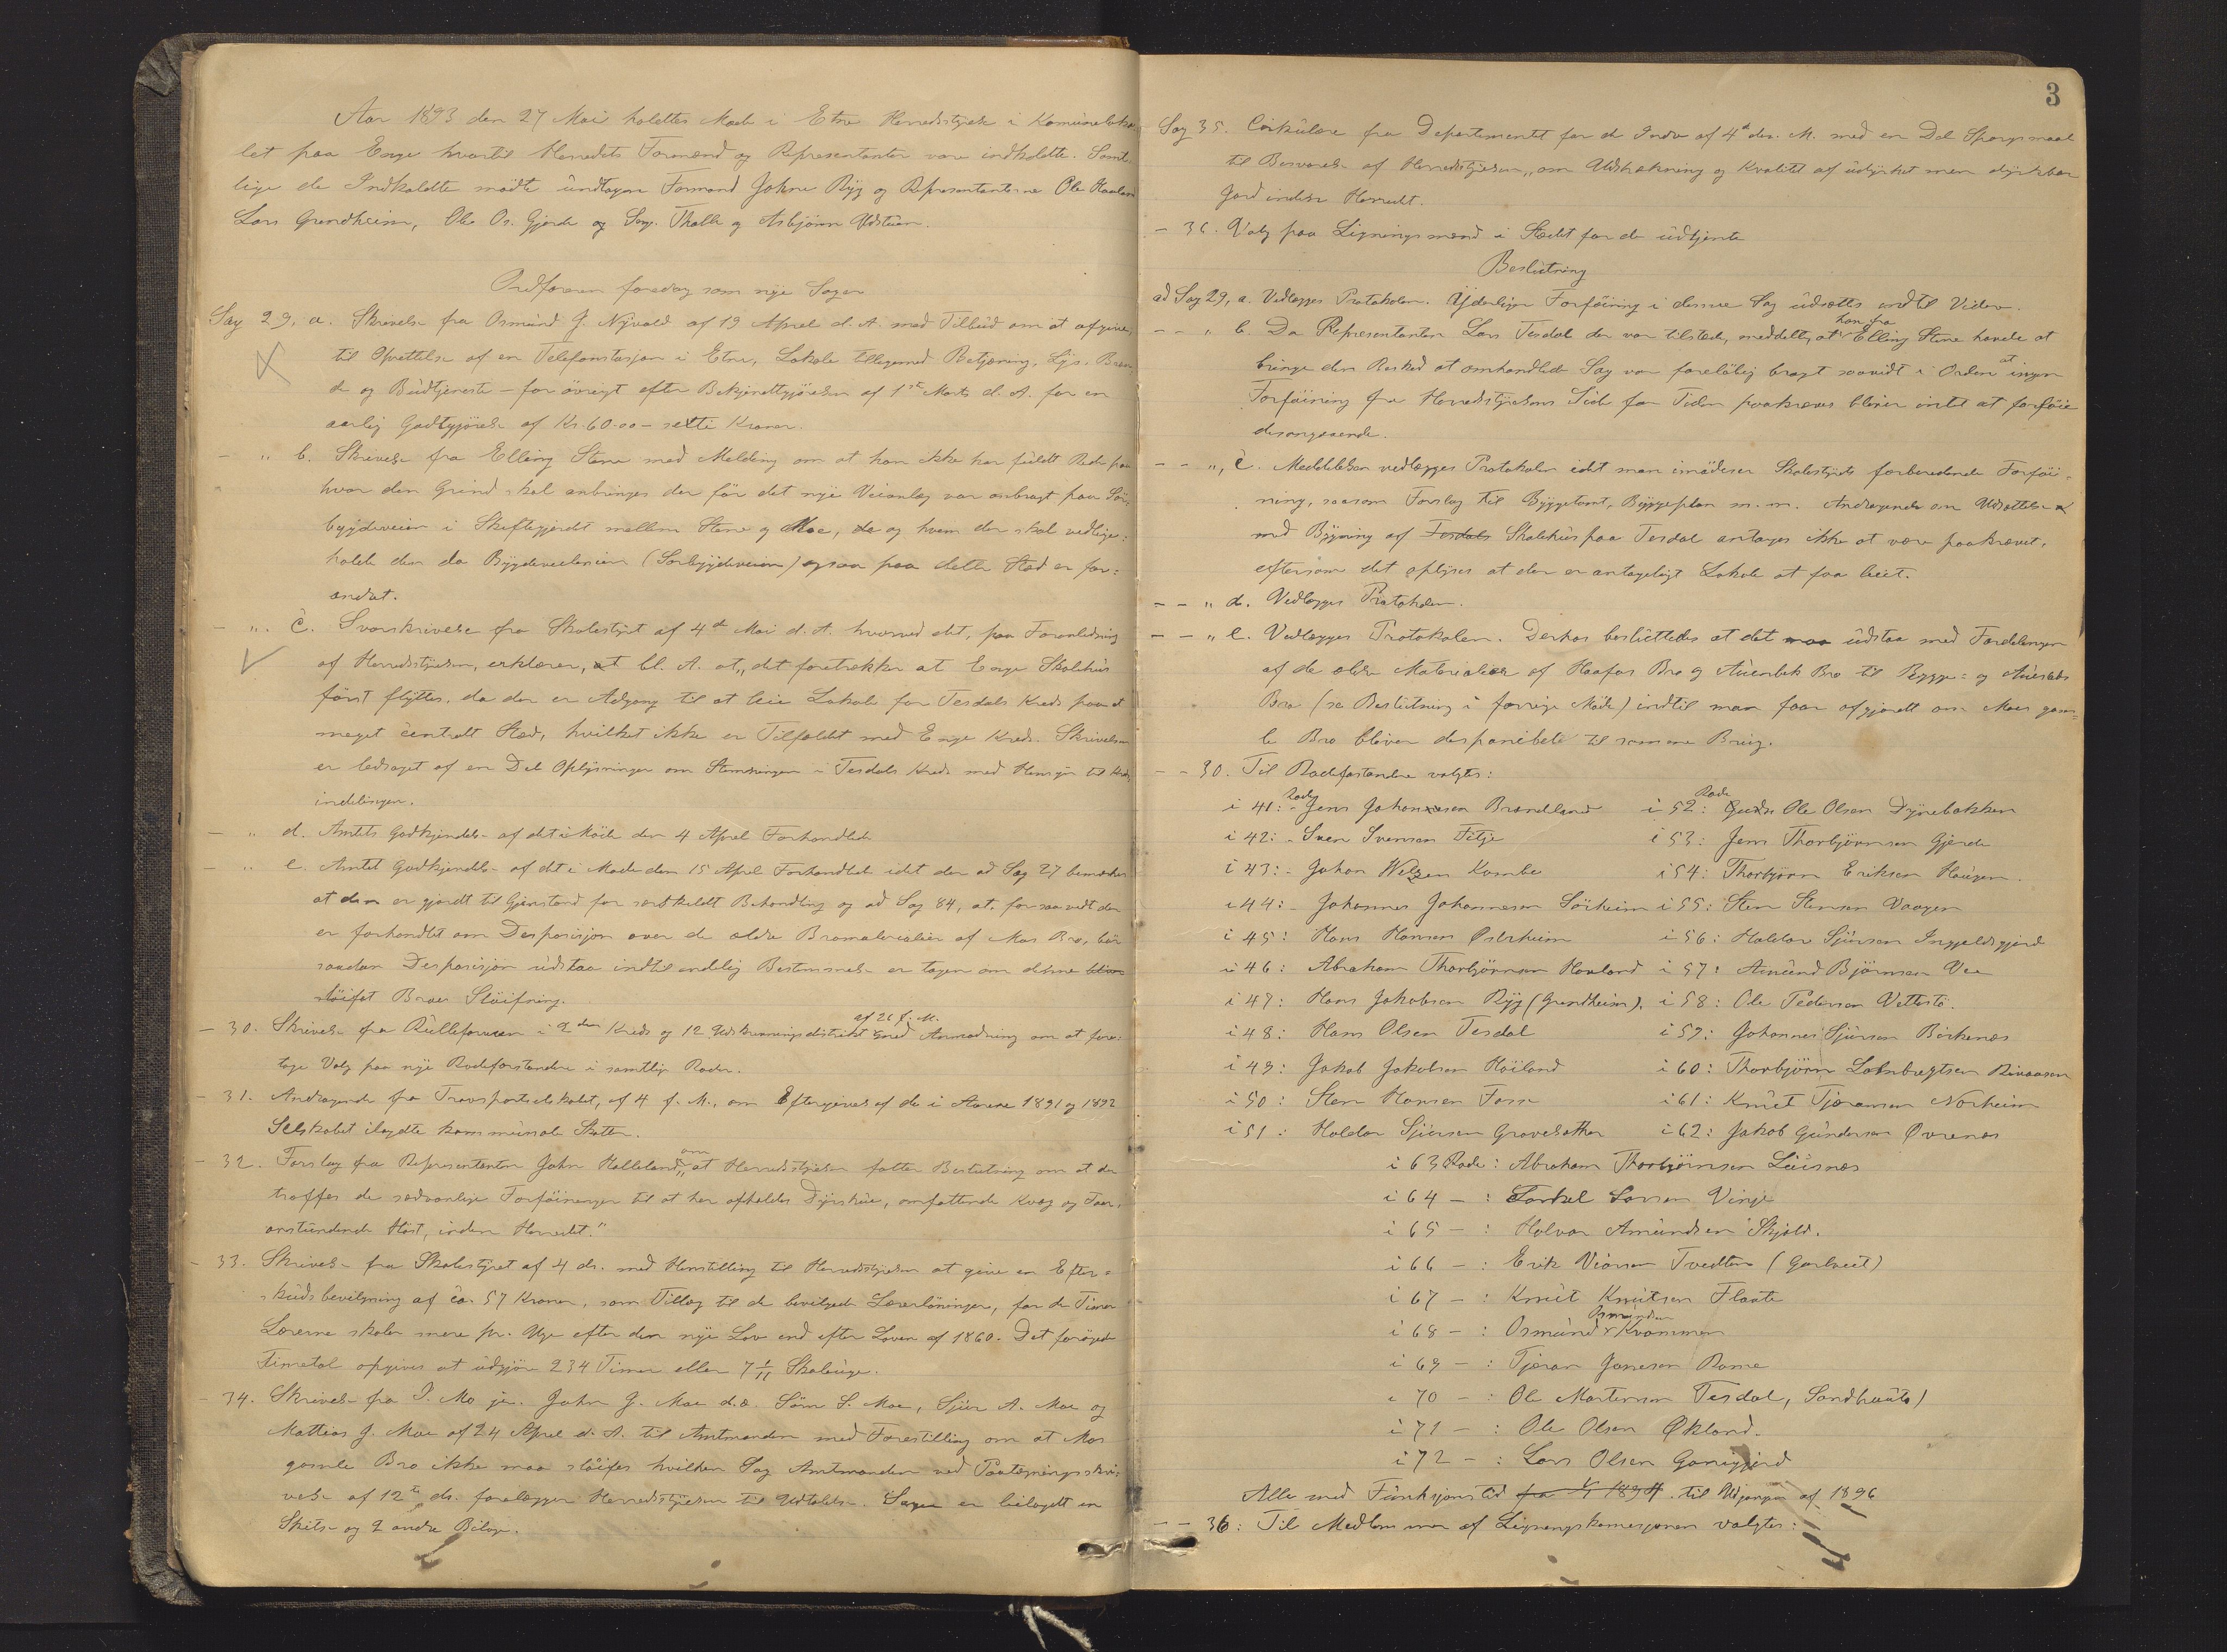 Aar 1893 den 27 Mai holdtes Møde i Etne Herredsstyrelse i Komuneloka
let paa Enge hvortil Herredets Formænd og Repræsentanter vare indkaldte. Samt
lige de Indkaldte mødte undtagen Formand Johne Ryg og Repræsentanterne Ole Haaland
Lars Grindheim, Ole Os. Gjerde og Thalle og Asbjørn Udstuen.
Ordføreren foredrog som nye Sager
Sag 29, a. Skrivelse fra Osmund G. Nyvold af 19 April d. A. med Tilbud om at afgive,
til Oprettelse af en Telefonstasjon i Etne, Lokale tilligemed Betjening, Lys, Bræn
de og Budtjeneste – for øvrigt efter Bekjendtgjørelsen af 1ste Marts d. A. for en
aarlig Godtgjørelse af Kr. 60.00 – sexti Kroner.
– " b. Skrivelse fra Elling Stene med Melding om at han ikke har fuldt Rede paa
hvor den Grind skal anbringes der før det nye Veianlæg var anbragt paa Sør
bygdeveien i Skiftegjerdet mellem Stene og Moe, da og hvem der skal vedlige:
holde den da Bygdeveilinien (Sørbygdeveien) ogsaa paa dette Sted er for:
andret.
– ". c. Svarskrivelse fra Skolestyret af 4de Mai d. A. hvorved det, paa Foranledning
af Herredsstyrelsen, erklærer, at bl. A. at „det foretrækker at Enge Skolehus
først flyttes, da der er Adgang til at leie Lokale for Tesdals Kreds paa et
meget centralt Sted, hvilket ikke er Tilfældet med Enge Kreds. Skrivelsen
er ledsaget af en Del Oplysninger om Stemningen i Tesdals Kreds med Hensyn til Kreds
inddelingen.
– " d. Amtets Godkjendelse af det i Møde den 4 April Forhandlede
– " e. Amtets Godkjendelse af det i Møde den 15 April Forhandlede idet der ad Sag 27 bemærkes
at den er gjordt til Gjenstand for særskildt Behandling og ad Sag 84, at, forsaavidt der
er forhandlet om Desposisjon over de ældre Bromaterialier af Moes Bro, bør
saadan Desposisjon udstaa indtil endelig Bestemmelse er tagen om denne bliver
sløifet Broes Sløifning.
– 30. Skrivelse fra Rulleføreren i 2den Kreds og 12 Udskrivningsdistrikt af 26 f. M. med Anmodning om at fore:
tage Valg paa nye Rodeforstandere i samtlige Roder.
– 31. Andragende fra Transportselskabet, af 4 f. M., om Eftergivelse af de i Aarene 1891 og 1892
Selskabet ilagdte kommunale Skatter.
– 32. Forslag fra Repræsentanten John Halleland, om „at Herredsstyrelsen fatter Beslutning om at der
træffes de sædvanlige Forføininger til at her afholdes Dyrskue, omfattende Kvæg og Faar,
anstundende Høst, inden Herredet."
– 33. Skrivelse fra Skolestyret af 4 ds. med Henstilling til Herredsstyrelsen at give en Efter=
skudsbevilgning af ca. 57 Kroner, som Tillæg til de bevilgede Lærerlønninger, for de Timer
Lærerne skoler mere pr. Uge efter den nye Lov end efter Loven af 1860. Det forøgede
Timetal opgives at udgjøre 234 Timer eller 7 1/11 Skoleuge.
– 34. Skrivelse fra I. Mo jr. John J. Moe d.æ. Søren S. Moe, Sjur A. Moe og
Mattias J. Moe af 24 April d. A. til Amtmanden med Forestilling om at Moes
gamle Bro ikke maa sløifes hvilken Sag Amtmanden ved Paategningsskri:
velse af 12te ds. forelægger Herredsstyrelsen til Udtalelse. Sagen er bilagdt en
Skitse og 2 andre Bilage.
3
Sag 35. Cirkulære fra Departementet for det Indre af 4de ds. M. med en Del Spørgsmaal
til Besvarelse af Herredsstyrelsen, „om Udstrækning og Kvalitet af udyrket men dyrkbar
Jord inden Herredet.
– 36. Valg paa Ligningsmænd i Stedet for de udtjente
Beslutning
ad Sag 29, a. Vedlægges Protokolen. Yderligere Forføining i denne Sag udsættes indtil Videre.
– – " b. Da Repræsentanten Lars Tesdal der var tilstede, meddelte, at han fra Elling Stene havde at
bringe den Besked at omhandlede Sag var foreløbig bragt saavidt i Orden at ingen
Forføining fra Herredsstyrelsens Side for Tiden paakræves bliver intet at forføie
desangaaende.
– – ", c. Meddelelsen vedlægges Protokolen idet man imødeser Skolestyrets forberedende Forføi=
ning, saasom Forslag til Byggetomt, Byggeplan m. m. Andragende om Udsættelse
med Bygning af Tesdals Skolehus paa Tesdal antages ikke at være paakrævet,
eftersom det oplyses at der er antageligt Lokale at faa leiet.
– – " d. Vedlægges Protokolen.
– – " e. Vedlægges Protokolen. Derhos besluttedes at det maa udstaa med Fordelingen
af de ældre Materialier af Haafos Bro og Auenbek Bro til Rygge= og Austads
Bro (se Beslutning i forrige Møde) indtil man faar afgjordt om Moes gam=
le Bro bliver desponibel til samme Brug.
– – 30. Til Rodeforstandere valgtes:
i 41: Rode Jens Johannesen Brændeland
i 52: Rode Ole Olsen Dyrebakken
i 42: – Sven Svensen Fitje
i 53: Jens Thorbjørnsen Gjerde
i 43: – Johan Nelsen Kambe
i 54: Thorbjørn Eriksen Haugen.
i 44: – Johannes Johannesen Sørheim
i 55: Sten Stensen Vaagen
i 45: Hans Hansen Østrheim
i 56: Haldor Sjursen Ingjeldsgjerd
i 46: Abraham Thorbjørnsen Houland
i 57: Amund Bjørnsen Vea
i 47: Hans Jakobsen Ryg (Grindheim).
i 58: Ole Pedersen Vettestø.
i 48: Hans Olsen Tesdal
i 59: Johannes Sjursen Birkenes
i 49: Jakob Jakobsen Høiland
i 60: Thorbjørn Lambregtsen Rivaasen
i 50: Sten Hansen Fosse
i 61: Knut Tjæransen Norheim
i 51: Haldor Sjursen Gravelsæther
i 62: Jakob Gundersen Øvrenæs
i 63 Rode: Abraham Thorbjørnsen Lusnæs
i 64 – : Torkel Larsen Vinje
i 65 – : Halvor Amundsen Skjold.
i 66 – : Erik Viersen Tvedten (Gartveit)
i 67 – : Knut Knutsen Flaate
i 68 – : Osmund Osmundsen Kvammen
i 69 – : Tjæran Jonesen Rame
i 70 – : Ole Mortensen Tesdal, Sandhaula)
i 71 – : Ole Olsen Økland.
i 72 – : Lars Olsen Gamgjerd
Alle med Funksjonstid fra 1/1 1894. til Udgangen af 1896
– – 36: Til Medlemmer af Ligningskomisjonen valgtes: